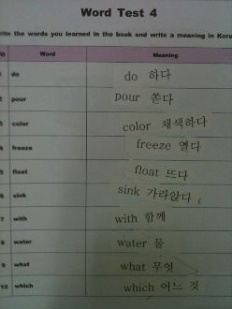 Word Test 4
rite the words you learned in the book and write a meaning in Kore
No Word Meaning
1 do do 하다
2 pour pour 쏟다
3 color color 채색하다
4 freeze freeze 열다
5 float float 뜨다
6 sink sink 가라앉다
7 with with 함께
8 water water 물
9 what what 무엇
10 which which 어느 것